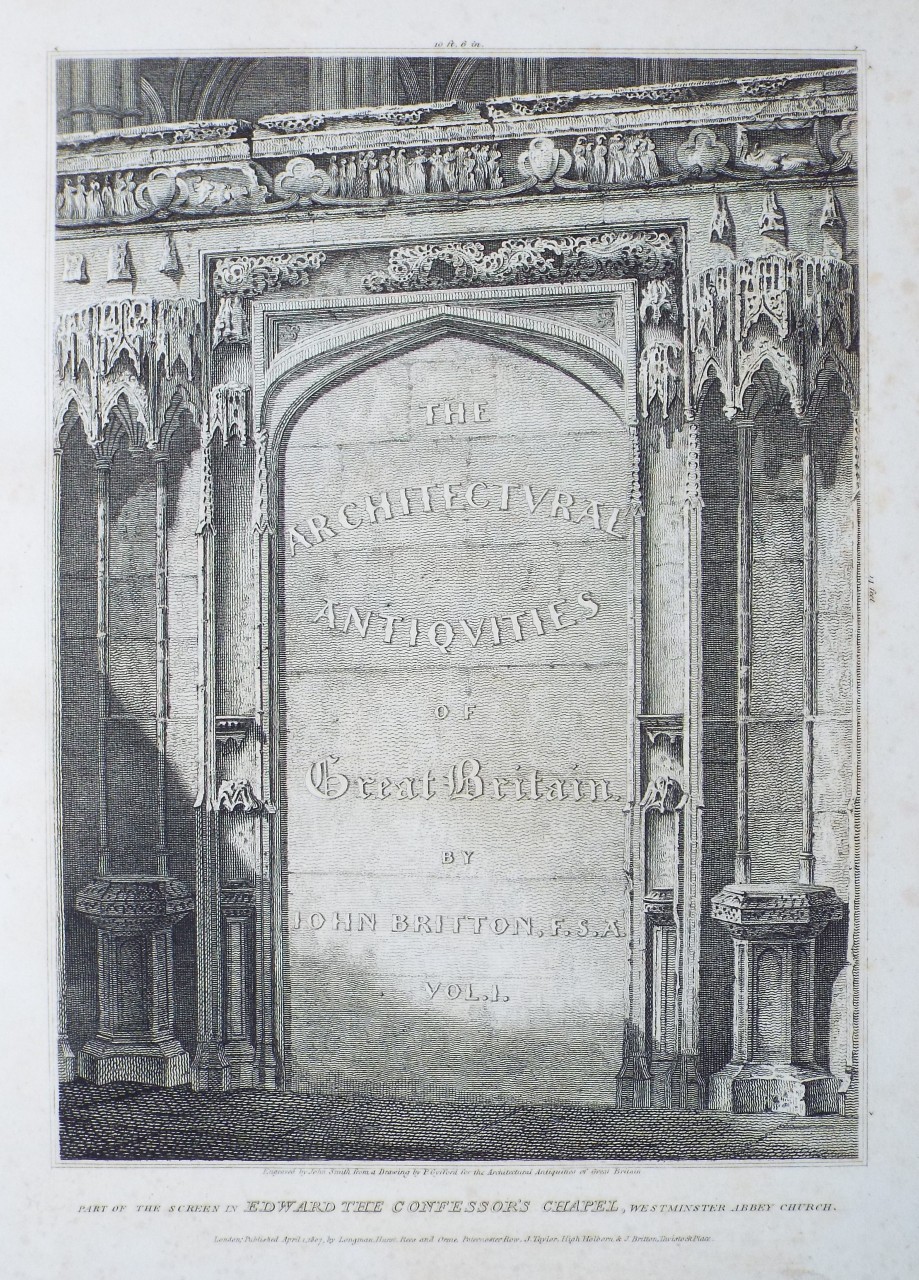 10 ft. 6 in.
THE
ARCHITECTVRAL
ANTIQVITIES
OF
Great Britain.
BY
JOHN BRITTON, F.S.A.
VOL.I.
Engraved by John Smith from a Drawing by P Gyfford for the Architectural Antiquities of Great Britain
PART OF THE SCREEN IN EDWARD THE CONFESSOR'S CHAPEL, WESTMINSTER ABBEY CHURCH.
London; Published April 1, 1807, by Longman, Hurst, Rees and Orme, Paternoster Row, J. Taylor, High Holborn, & J. Britton, Tavistock Place.